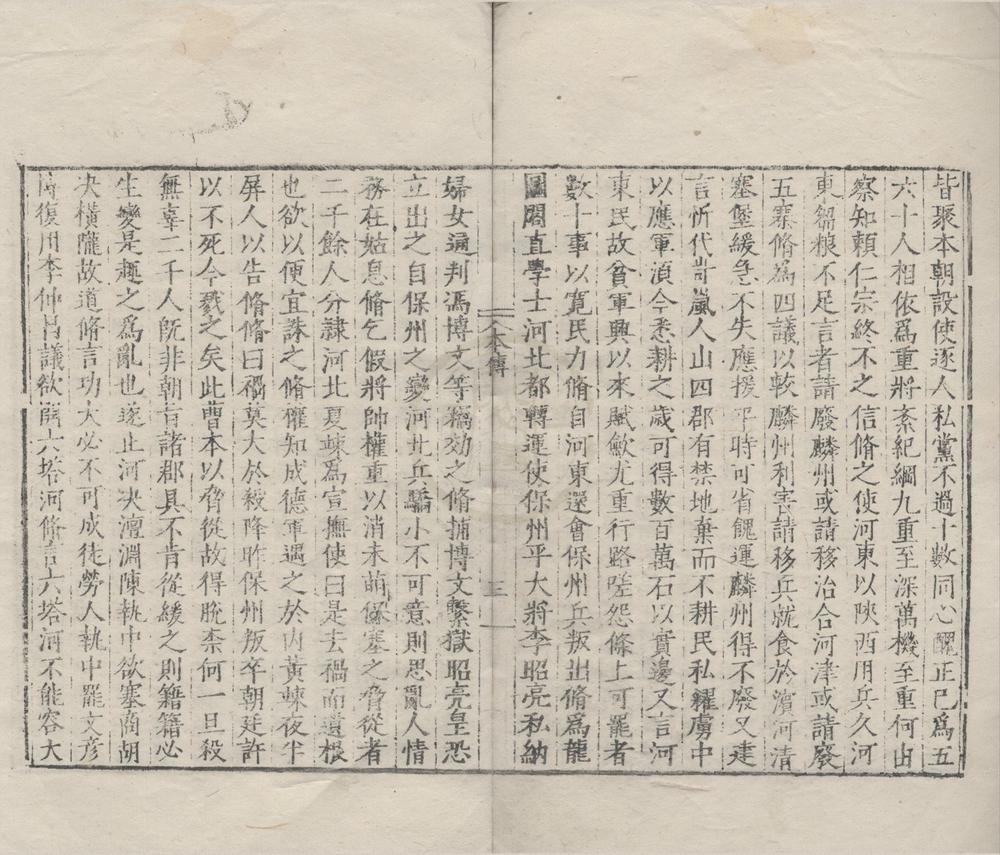 皆聚本朝設使逐人私黨不過十數同心醜正已爲五
六十人相依爲重將紊紀綱九重至深萬機至重何由
察知頼仁宗終不之信脩之使河東以陜西用兵久河
東芻粮不足言者請廢麟州或請移治合河津或請廢
五寨脩為四議以較麟州利害請移兵就食於濱河清
塞堡緩急不失應援平時可省餽運麟州得不廢又建
言忻代岢嵐人山四郡有禁地棄而不耕民私糴虜中
以應軍湏今悉耕之歲可得數百萬石以實邊又言河
東民故貧軍興以來賦歛尤重行路嗟怨條上可罷者
數十事以寬民力脩自河東還會保州兵叛出脩爲龍
圖閣直學士河北都轉運使保州平大將李昭亮私納
本傳
三
婦女通判馮博文等竊効之脩捕博文繫獄昭亮皇恐
立出之自保州之變河北兵驕小不可意則思亂人情
務在姑息脩乞假將帥權重以消未萌保塞之脅從者
二千餘人分隷河北夏竦爲宣撫使曰是去禍而遺根
也欲以便宜誅之脩權知成德軍遇之於内黄竦夜半
屏人以告脩脩曰禍莫大於殺降昨保州叛卒朝廷許
以不死今戮之矣此曹本以脅從故得脫柰何一旦殺
無辜二千人旣非朝旨諸郡具不肯從緩之則籍籍必
生變是趣之爲亂也遂止河决澶淵陳執中欲塞商胡
决橫隴故道脩言功大必不可成徒勞人執中罷文彦
博復用李仲昌議欲開六塔河脩言六塔河不能容大